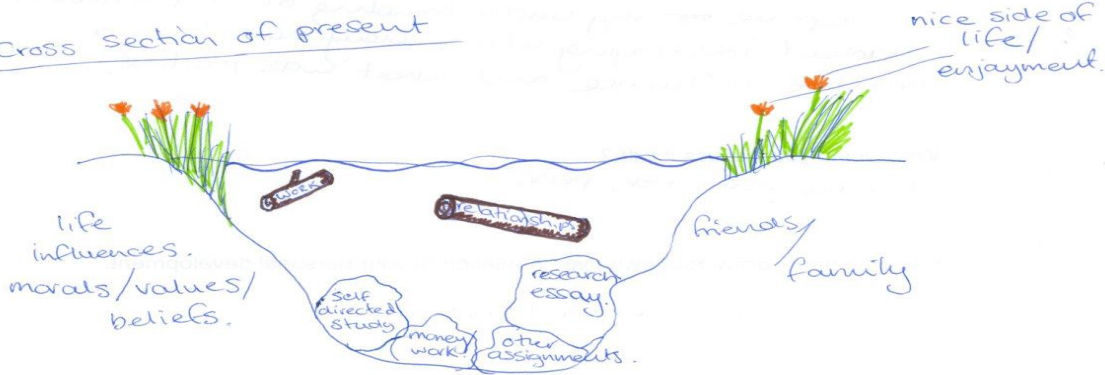 Cross section of present
nice side of
life/
enjoyment.
work
relationships
life
influences.
morals/values/
beliefs.
friends/
family
self
directed
study
money
work.
other
assignments.
research
essay.